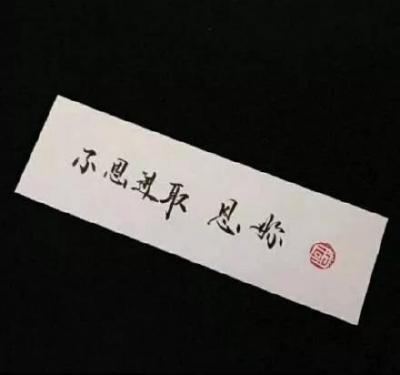 不思进取 思妳